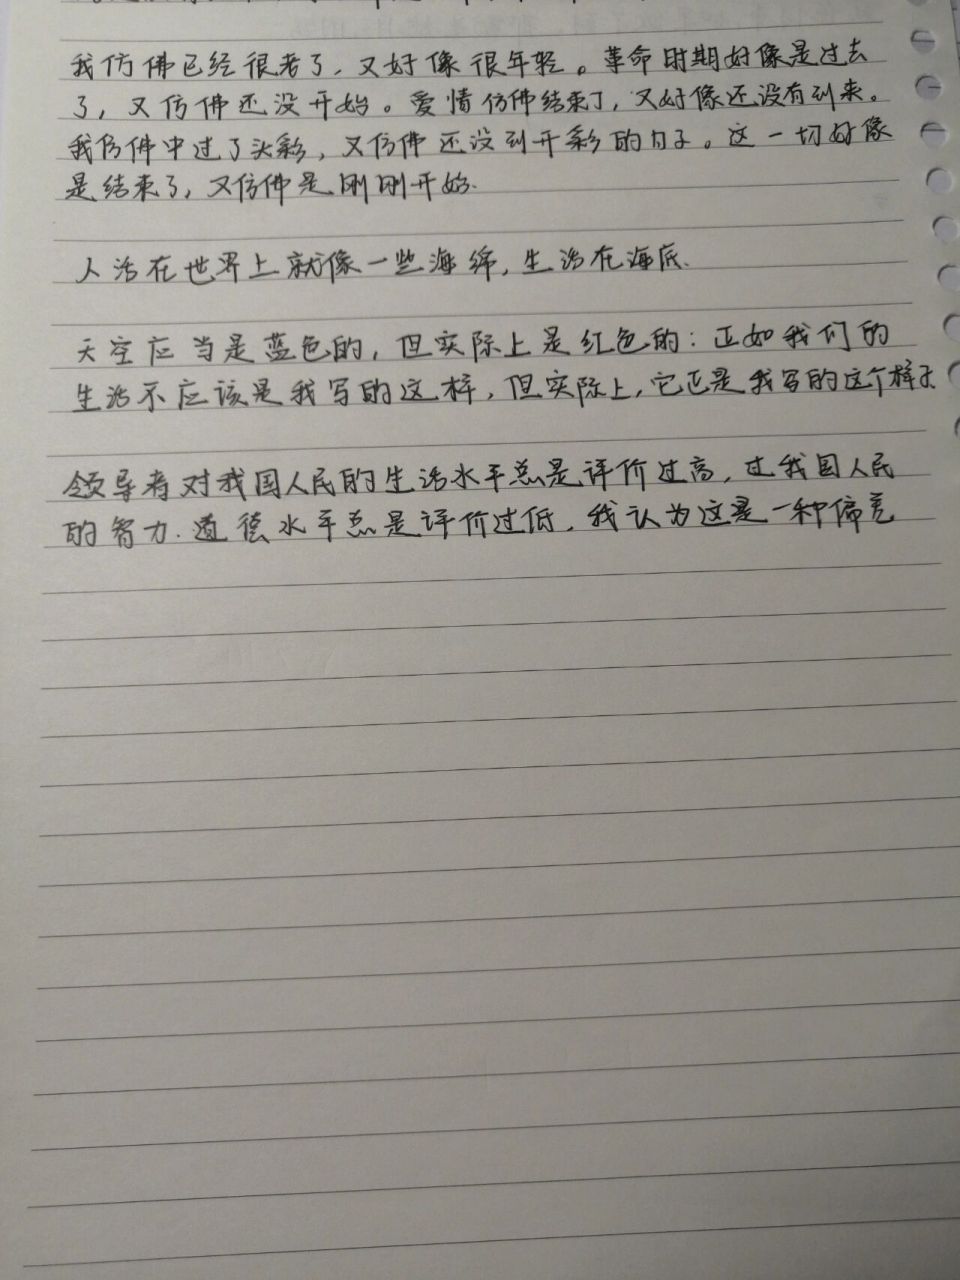 我仿佛已经很老了，又好像很年轻。革命时期好像是过去
了，又仿佛还没开始。爱情仿佛结束了，又好像还没有到来。
我仿佛中过了头彩，又仿佛还没到开彩的日子。这一切好像
是结束了，又仿佛是刚刚开始.
人活在世界上就像一些海绵，生活在海底.
天空应当是蓝色的，但实际上是红色的：正如我们的
生活不应该是我写的这样，但实际上，它正是我写的这个样子
领导者对我国人民的生活水平总是评价过高，过我国人民
的智力.道德水平总是评价过低，我认为这是一种偏差